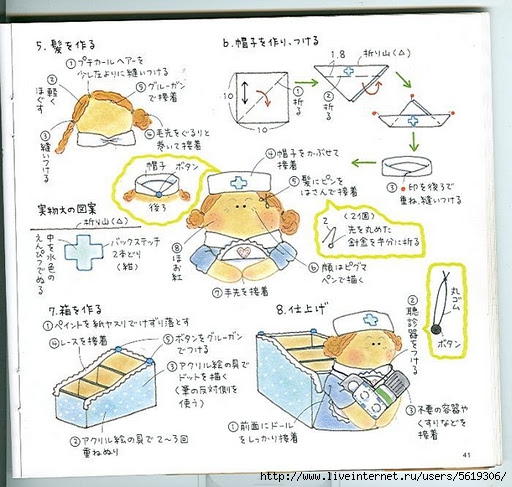 5. 髪を作る
①プチカールヘアーを
少し左よりに縫いつける
②軽く
ほぐす
⑤グルーガン
で接着
④毛先をぐるりと
巻いて接着
③縫いつける
6. 帽子を作り、つける
1.8
折り山(△)
10
10
①折る
②折る
③●印を後ろで
重ね、縫いつける
④帽子をかぶせて
接着
⑤髪にピンを
はさんで接着
帽子
ボタン
後ろ
2
(2個)
先を丸めた
針金を半分に折る
⑥顔はピグマ
ペンで描く
⑦手先を接着
⑧ほお紅
実物大の図案
折り山(△)
バックステッチ
2本どり
(紺)
中を水色の
えんぴつでぬる
7. 箱を作る
①ペイントを紙ヤスリでけずり落とす
④レースを接着
⑤ボタンをグルーガン
でつける
③アクリル絵の具で
ドットを描く
(筆の反対側を
使う)
②アクリル絵の具で2~3回
重ねぬり
8. 仕上げ
②聴診器をつける
丸ゴム
ボタン
①前面にドール
をしっかり接着
③不要の容器や
くすりなどを
接着
41
http://www.liveinternet.ru/users/5619306/